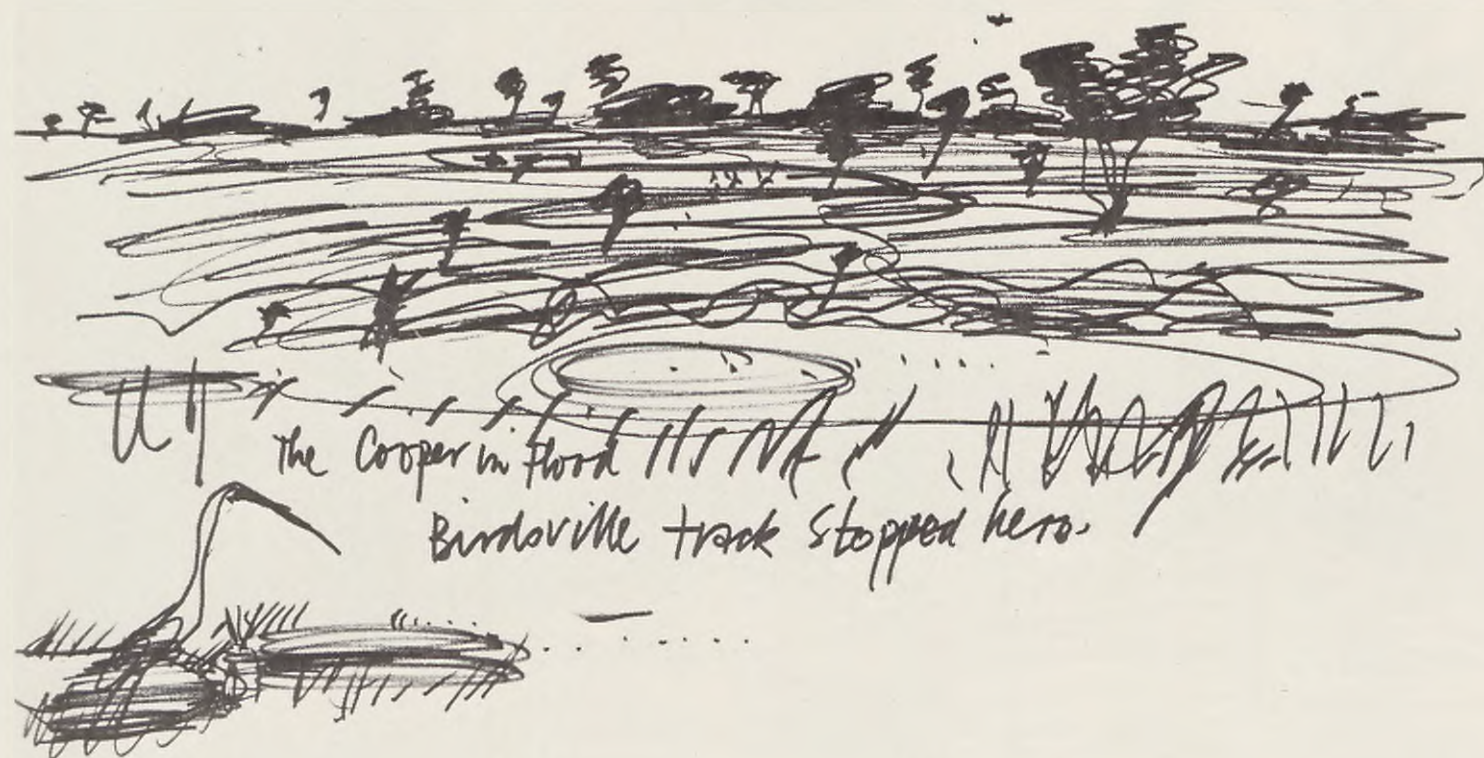 The Cooper in Flood
Birdsville track stopped here.